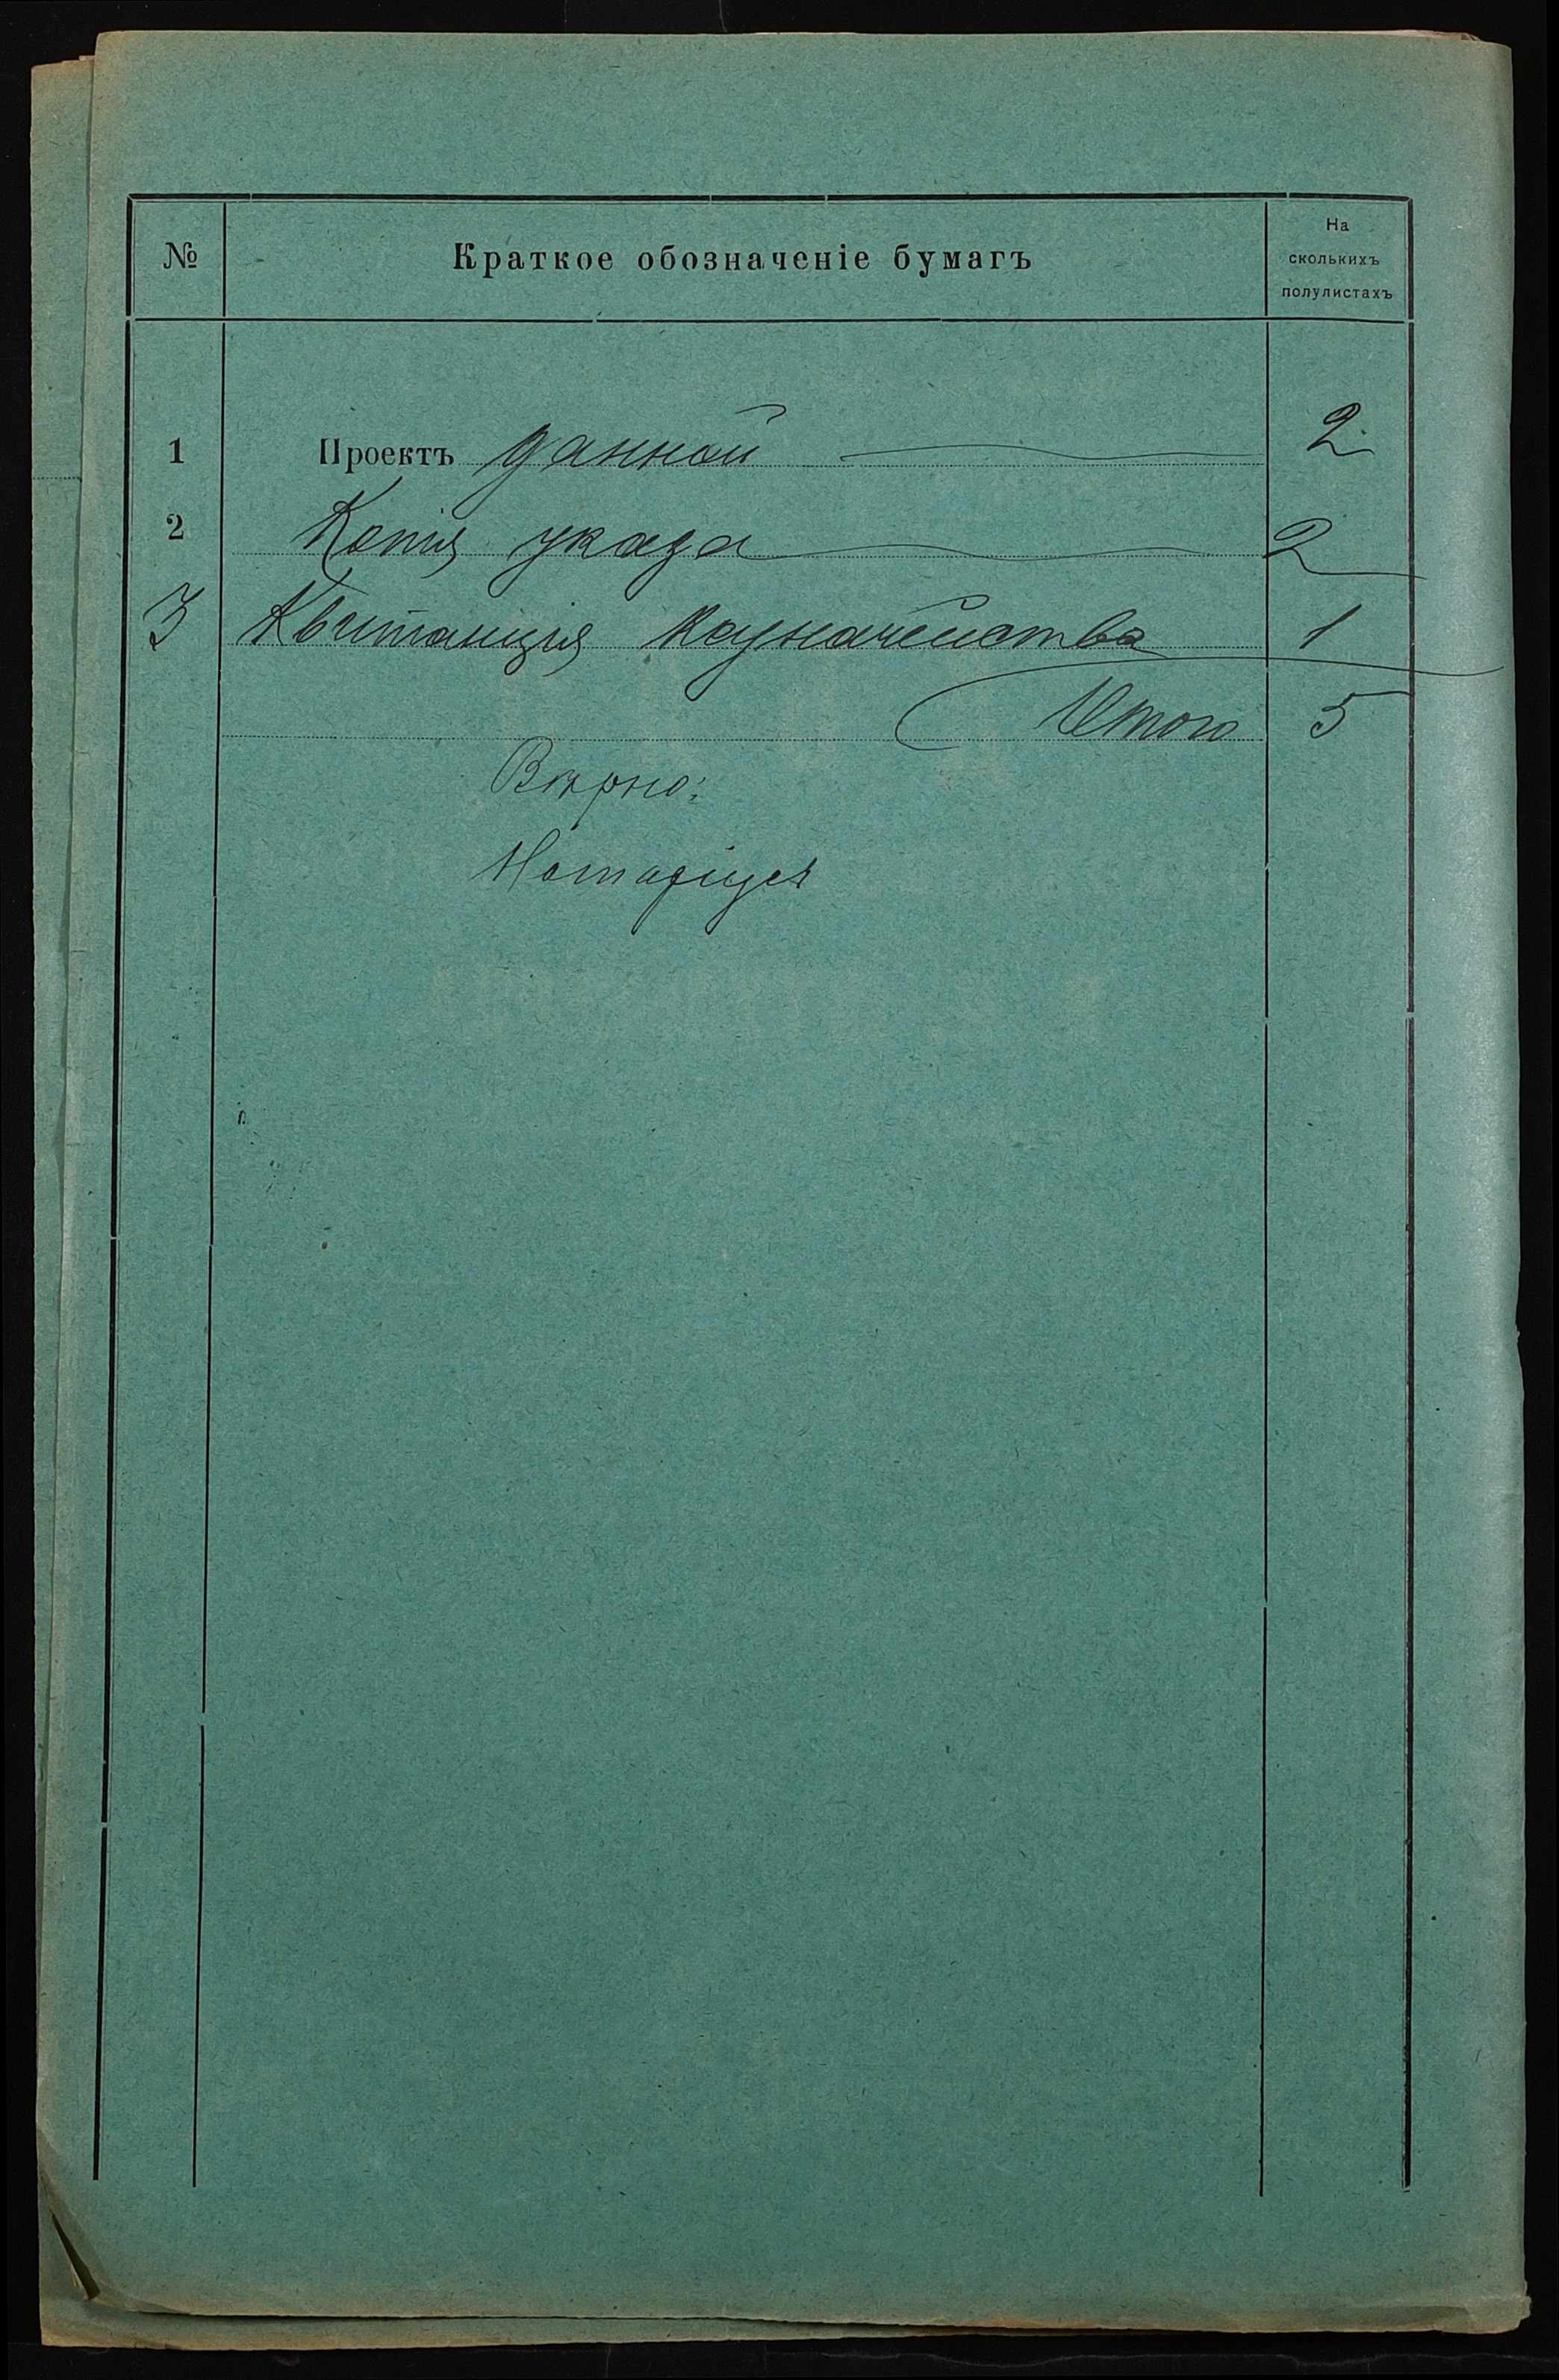 № Краткое обозначеніе бумагъ На сколькихъ полулистахъ
1 Проектъ данной 2
2 Копія указа 2
3 Квитанція казначейства 1
Итого 5
Вѣрно:
Нотаріусъ